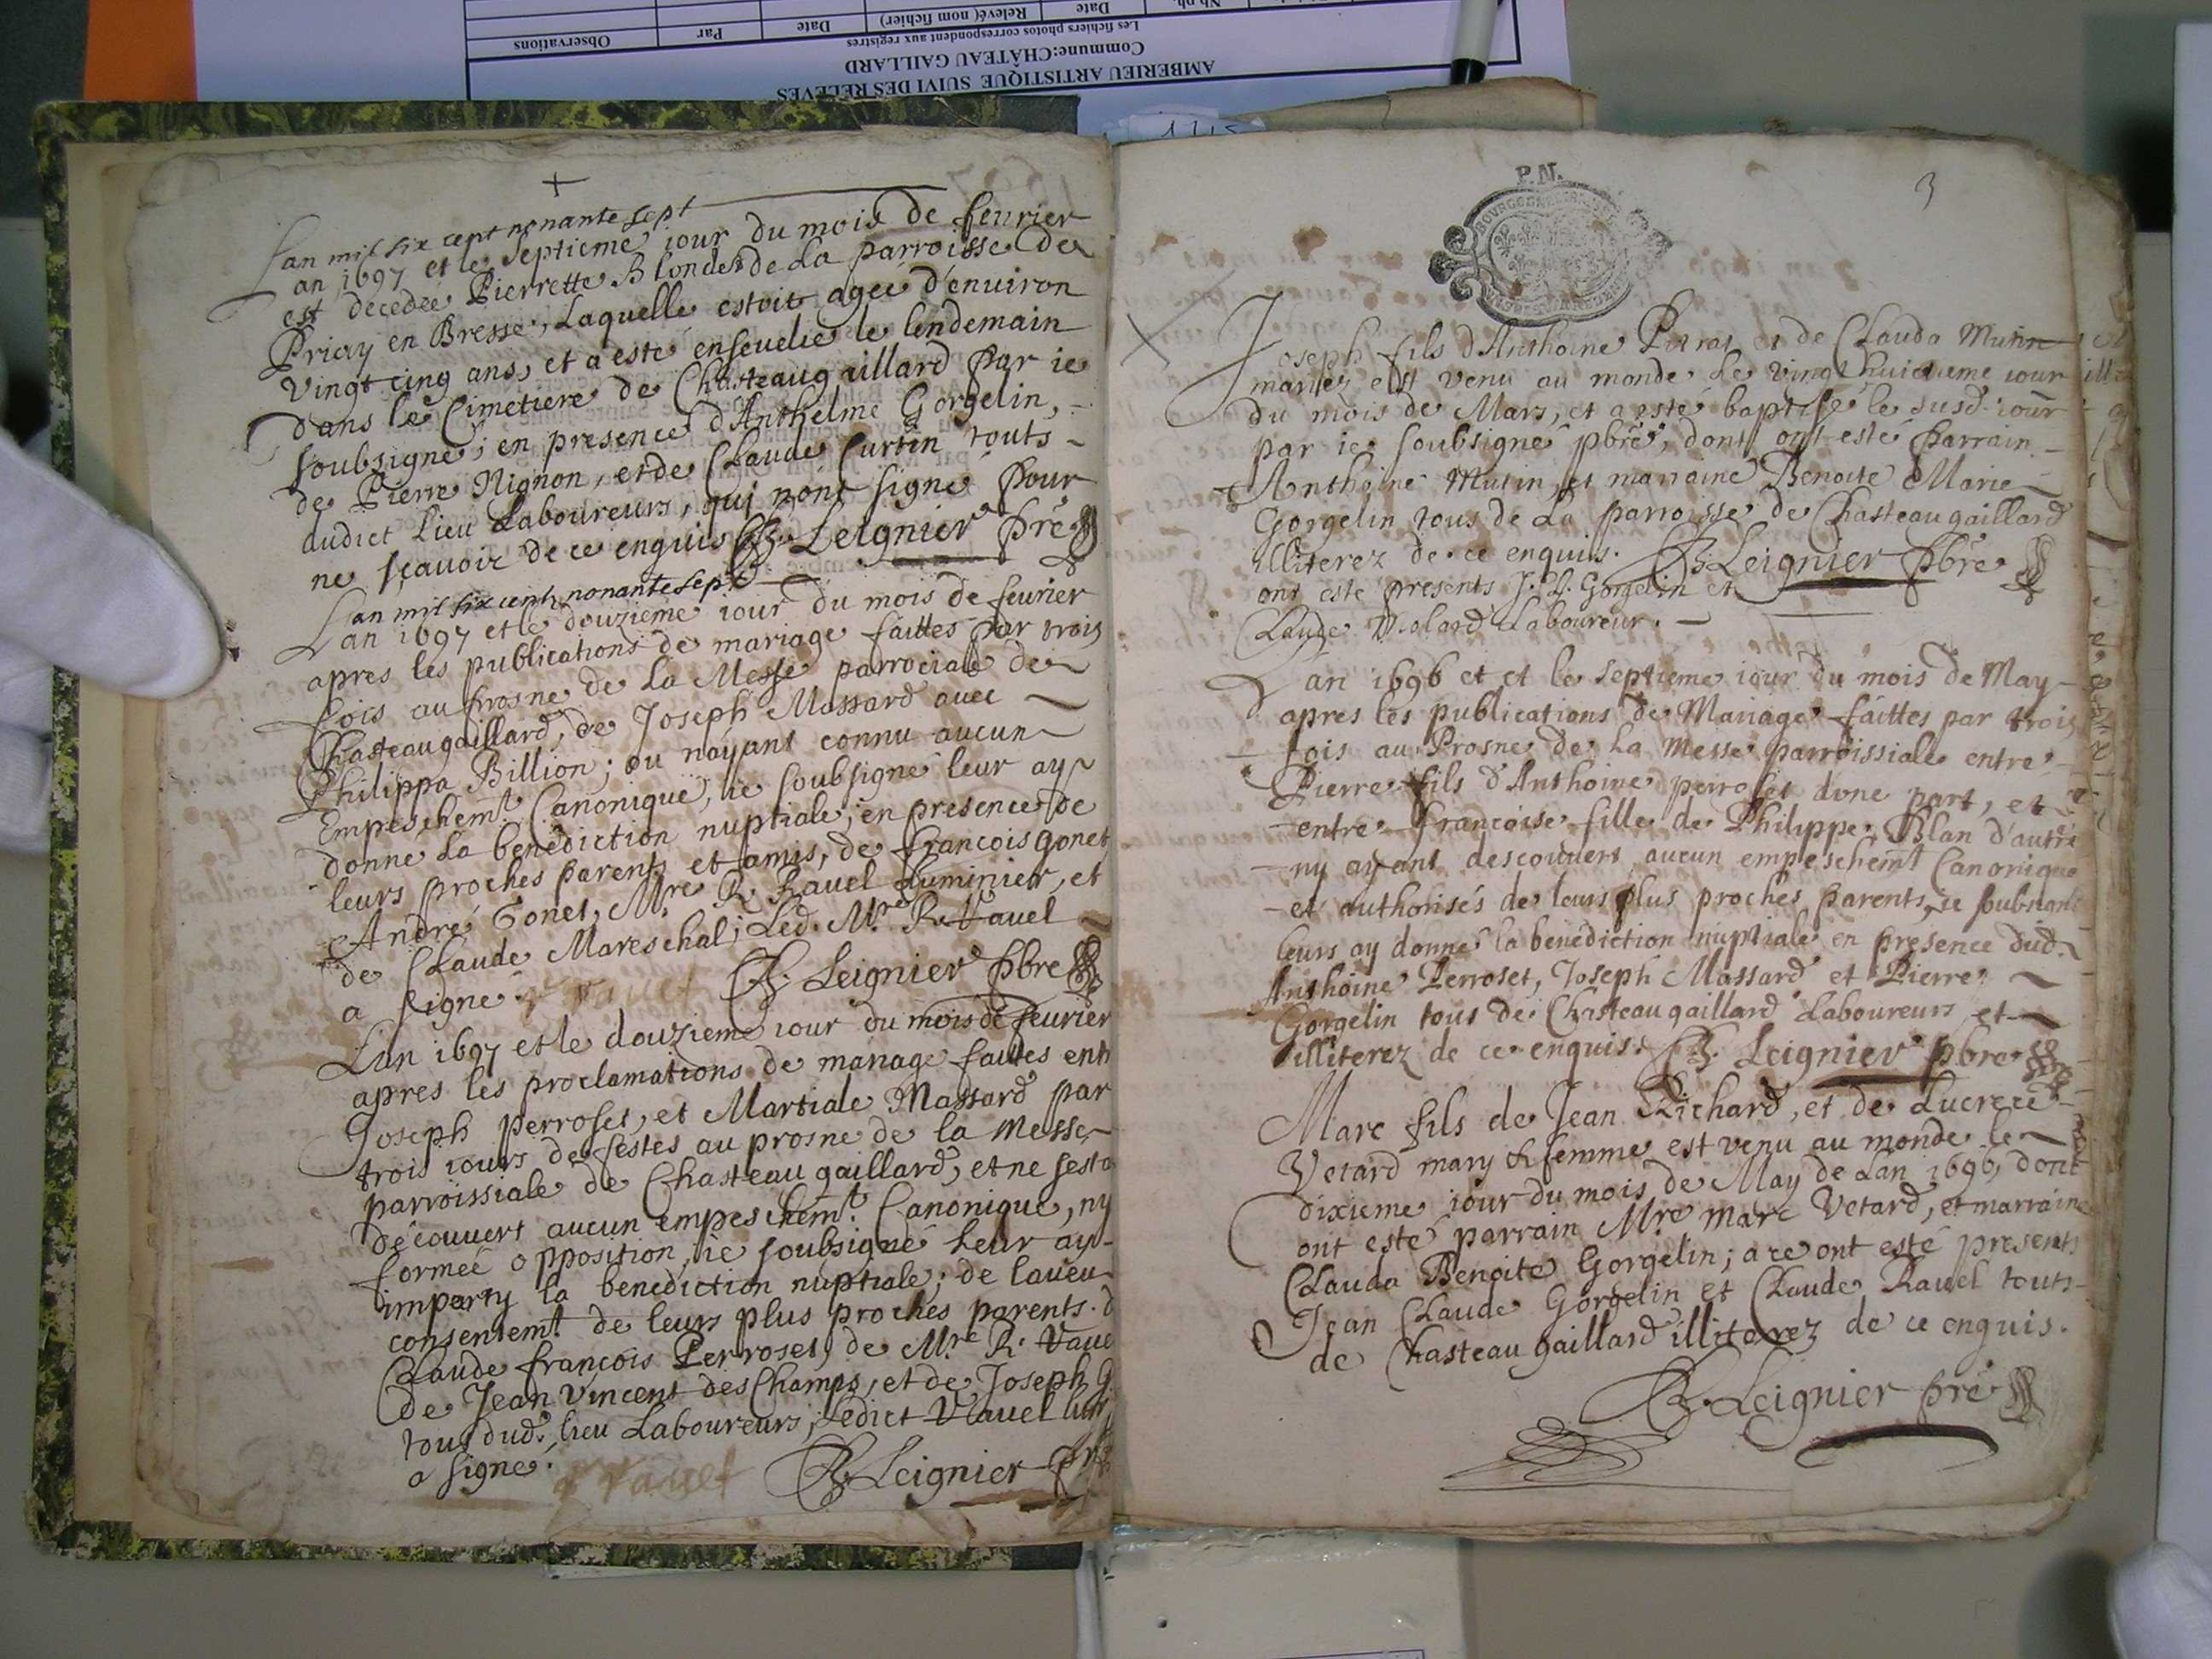 AMBERIEU ARTISTIQUE SUIVI DES RELEVES
Commune:CHÂTEAU GAILLARD
Les fichiers photos correspondent aux registres
Date
Relevé( nom fichier)
Date
Par
Observations
Lan mil six cent nonante sept
Lan 1697 et le septieme iour du mois de feurier
est decedée Pierrette Blondet de La parroisse de
Priay en Bresse, Laquelle estoit agée d'enuiron
Vingt cinq ans, et a esté enseuelie le lendemain
dans le Cimetiere de Chasteaugaillard par ie
soubsigné; en presence d'Anthelme Gorgelin,
de Pierre Nignon, et de Claude Curtin touts
dudict lieu Laboureurs, qui nont signé pour
ne sçauoir de ce enquis Leignier pre
Lan mil six cent nonante sept
Lan 1697 et le douzieme iour du mois de feurier
apres les publications de mariage faittes par trois
fois au prosne de La Messe parrociale de
Chasteaugaillard, de Joseph Massard auec
Philippa Billion; ou nayant connu aucun
Empeschemt Canonique, ie soubsigné leur ay
donné La benediction nuptiale, en presence de
leurs proches parents et amis, de francois Gonet
André Gonet, Mre R. Rauel Luminier, et
de Claude Mareschal; Led. Mre R. Vauel
a signé Leignier pbre
Lan 1697 et le douzieme iour du mois de feurier
apres les proclamations de mariage faites ent
Joseph perroset, et Martiale Massard par
trois iours de festes au prosne de la Messe
parroissiale de Chasteaugaillard, et ne sest
découuert aucun empeschemt Canonique, ny
formée opposition, ie soubsigné leur ay
imparty la benediction nuptiale; de laueu
consentemt de leurs plus proches parents. d
Claude francois Perroset, de Mre R. Vaue
de Jean Vincent des Champs, et de Joseph G
tous dud. lieu Laboureurs; Ledict Vauel
a signé. Leignier
P.N.
3
Joseph fils d'Anthoine et de Clauda Mutin
mariez est venu au monde Le Vingt huictieme iour
du mois de Mars, et a esté baptisé le susd. iour
par ie soubsigné pbre, dont ont esté parrain
Anthoine Mutin, et marraine Benoite Marie
Gorgelin tous de La parroisse de Chasteaugaillard
illiterez de ce enquis. Leignier pbre
ont esté presents J. Gorgelin et
Claude Molard Laboureur.
Lan 1696 et et le septieme iour du mois de May
apres les publications de Mariage faittes par trois
fois au Prosne de La Messe parroissiale entre
Pierre fils d'Anthoine perroset dune part, et
entre francoise fille de Philippe Blan d'autre
ny ayant descouuert aucun empeschemt Canonique
et authorisés de leurs plus proches parents, ie soubsigné
leurs ay donné la benediction nuptiale en presence dud.
Anthoine Perroset, Joseph Massard et Pierre
Gorgelin tous de Chasteaugaillard Laboureurs et
illiterez de ce enquis. Leignier pbre
Marc fils de Jean Richard, et de Lucrece
Vetard mary & femme est venu au monde le
dixieme iour du mois de May de Lan 1696, dont
ont esté parrain Mre Marc Vetard, et marraine
Clauda Benoite Gorgelin; a ce ont esté presents
Jean Claude Gorgelin et Claude Rauel touts
de Chasteaugaillard illiterez de ce enquis.
Leignier pre